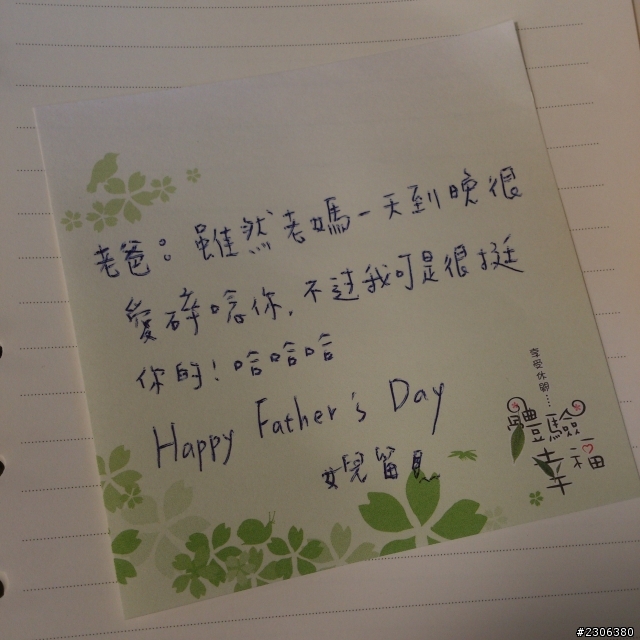 老爸：雖然老媽一天到晚很
愛碎唸你，不過我可是很挺
你的！哈哈哈
Happy Father's Day
女兒留
享受休閒...
體驗
幸福
#2306380